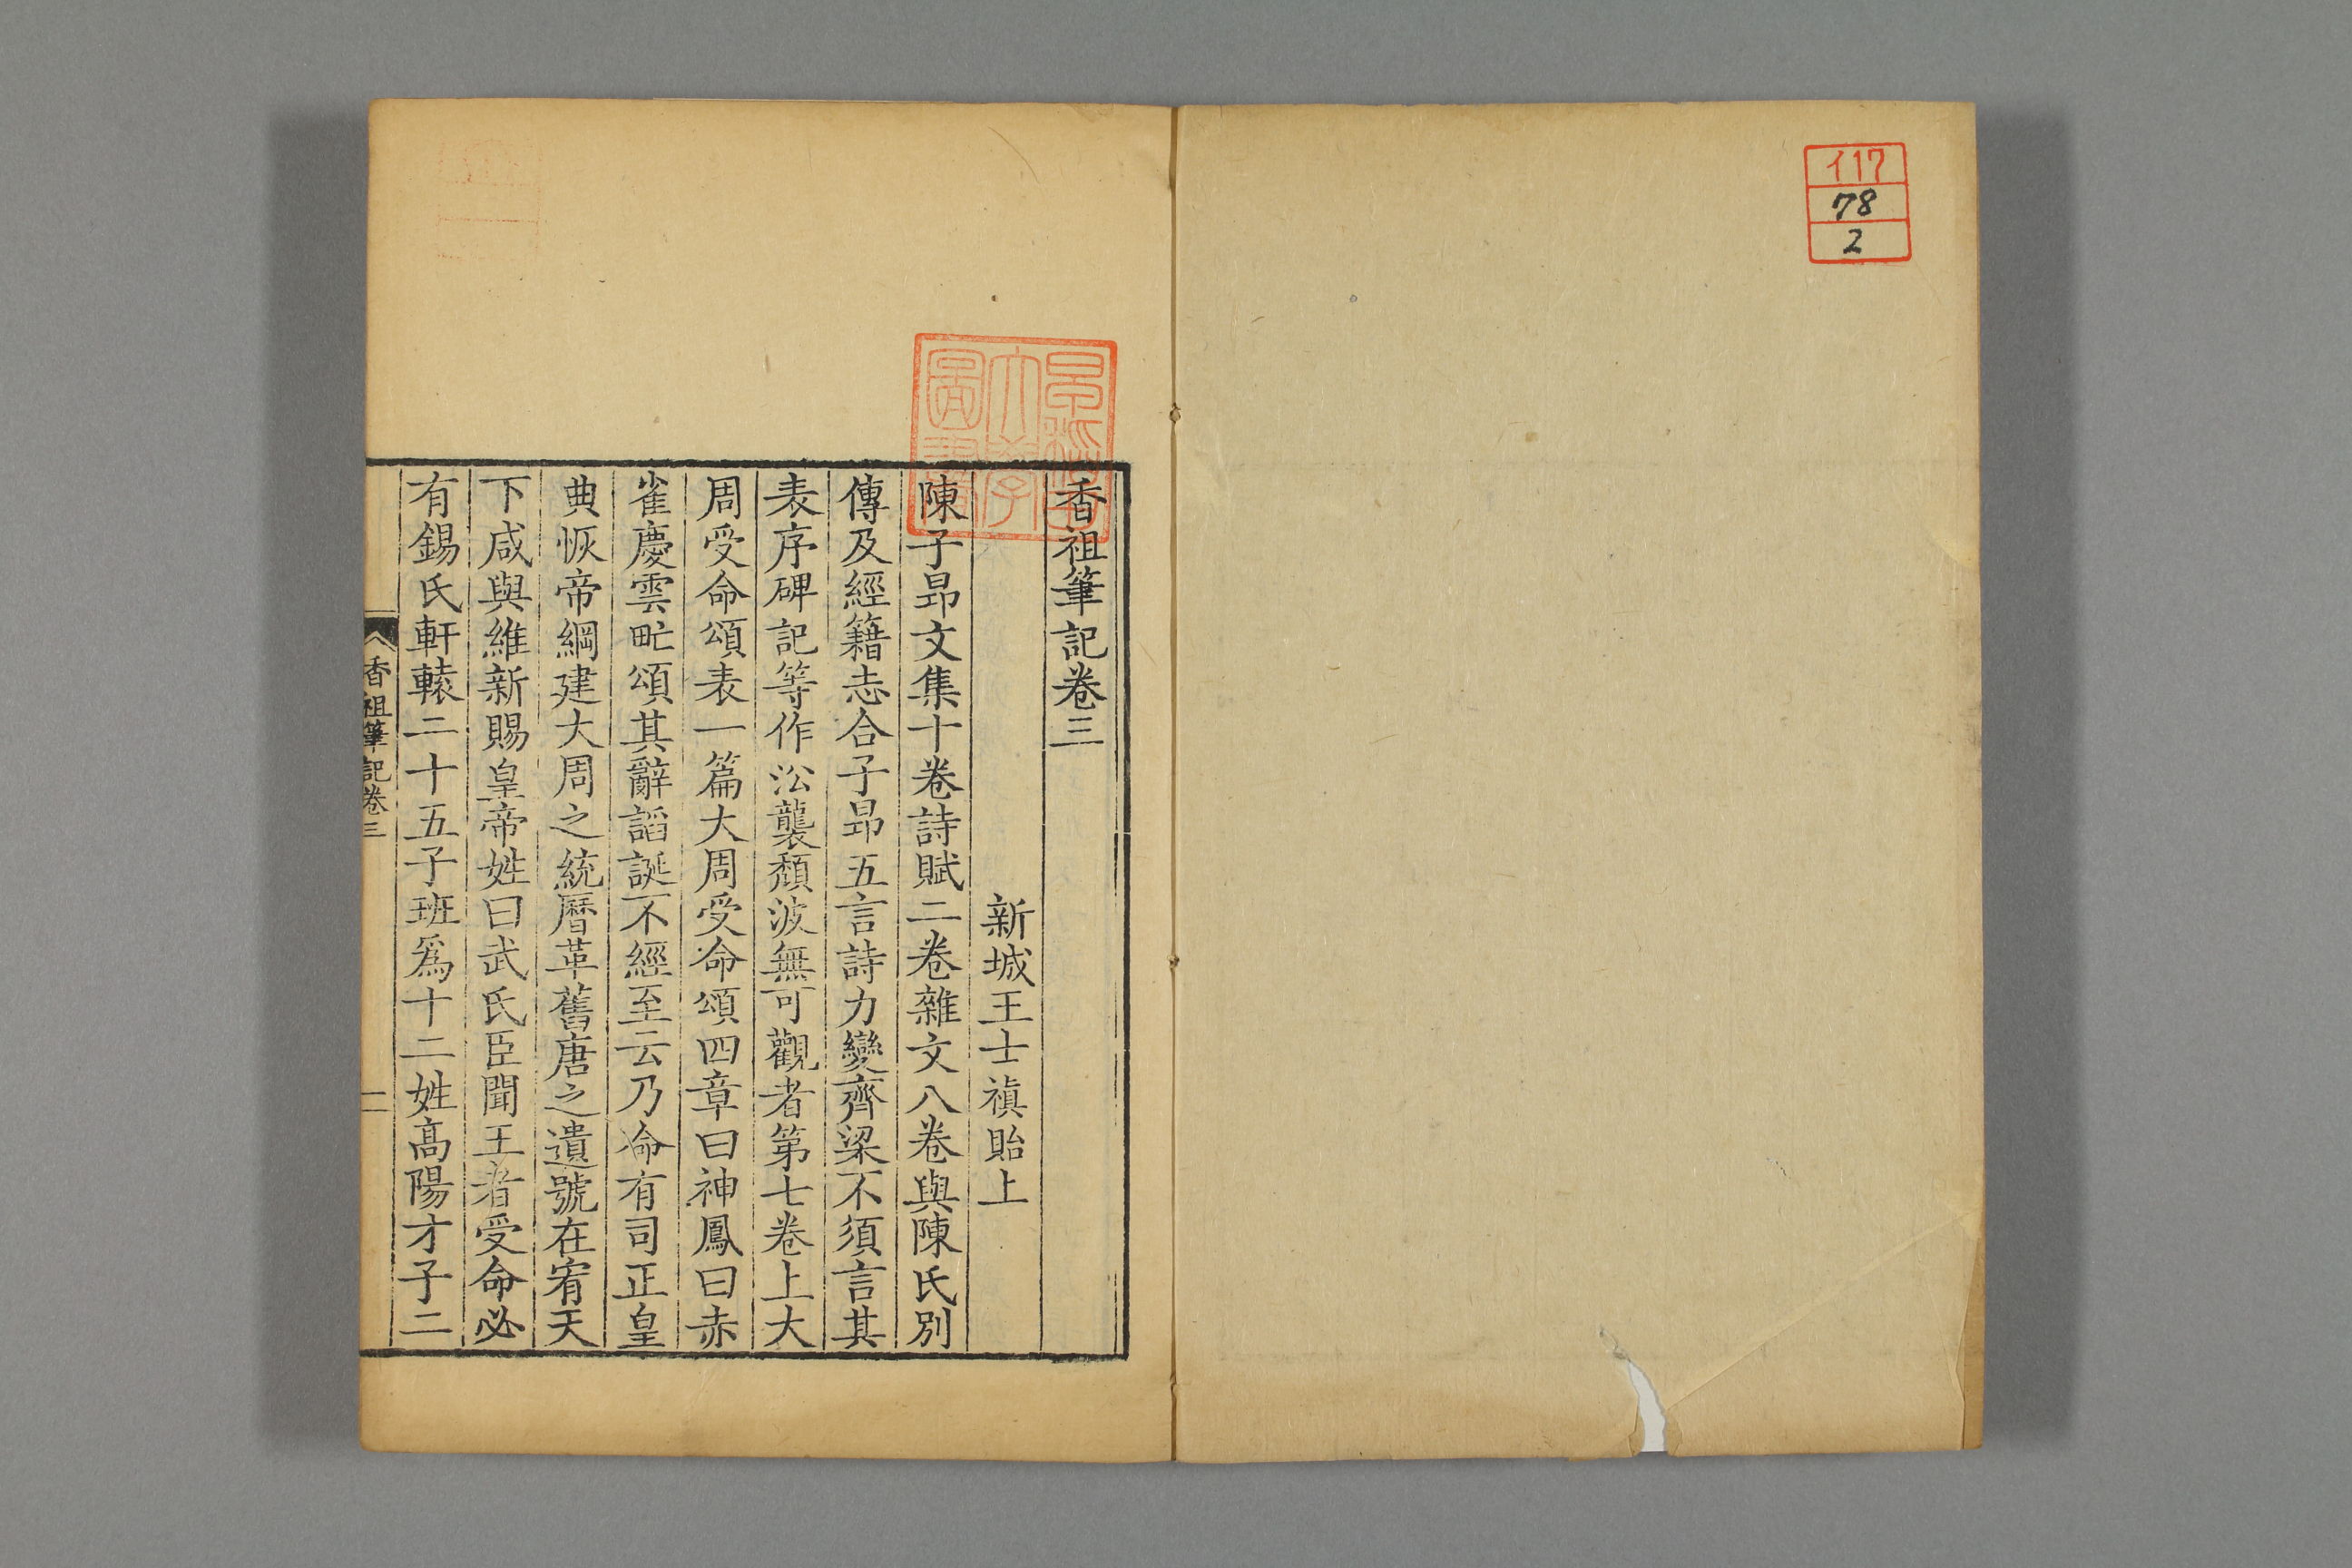 イ17
78
2
香祖筆記卷三
新城王士禛貽上
陳子昂文集十卷詩賦二卷雜文八卷與陳氏別
傳及經籍志合子昂五言詩力變齊梁不須言其
表序碑記等作沿襲頹波無可觀者第七卷上大
周受命頌表一篇大周受命頌四章曰神鳳曰赤
雀慶雲甿頌其辭諂誕不經至云乃命有司正皇
典恢帝綱建大周之統曆革舊唐之遺號在宥天
下咸與維新賜皇帝姓曰武氏臣聞王者受命必
有錫氏軒轅二十五子班爲十二姓高陽才子二
香祖筆記卷三